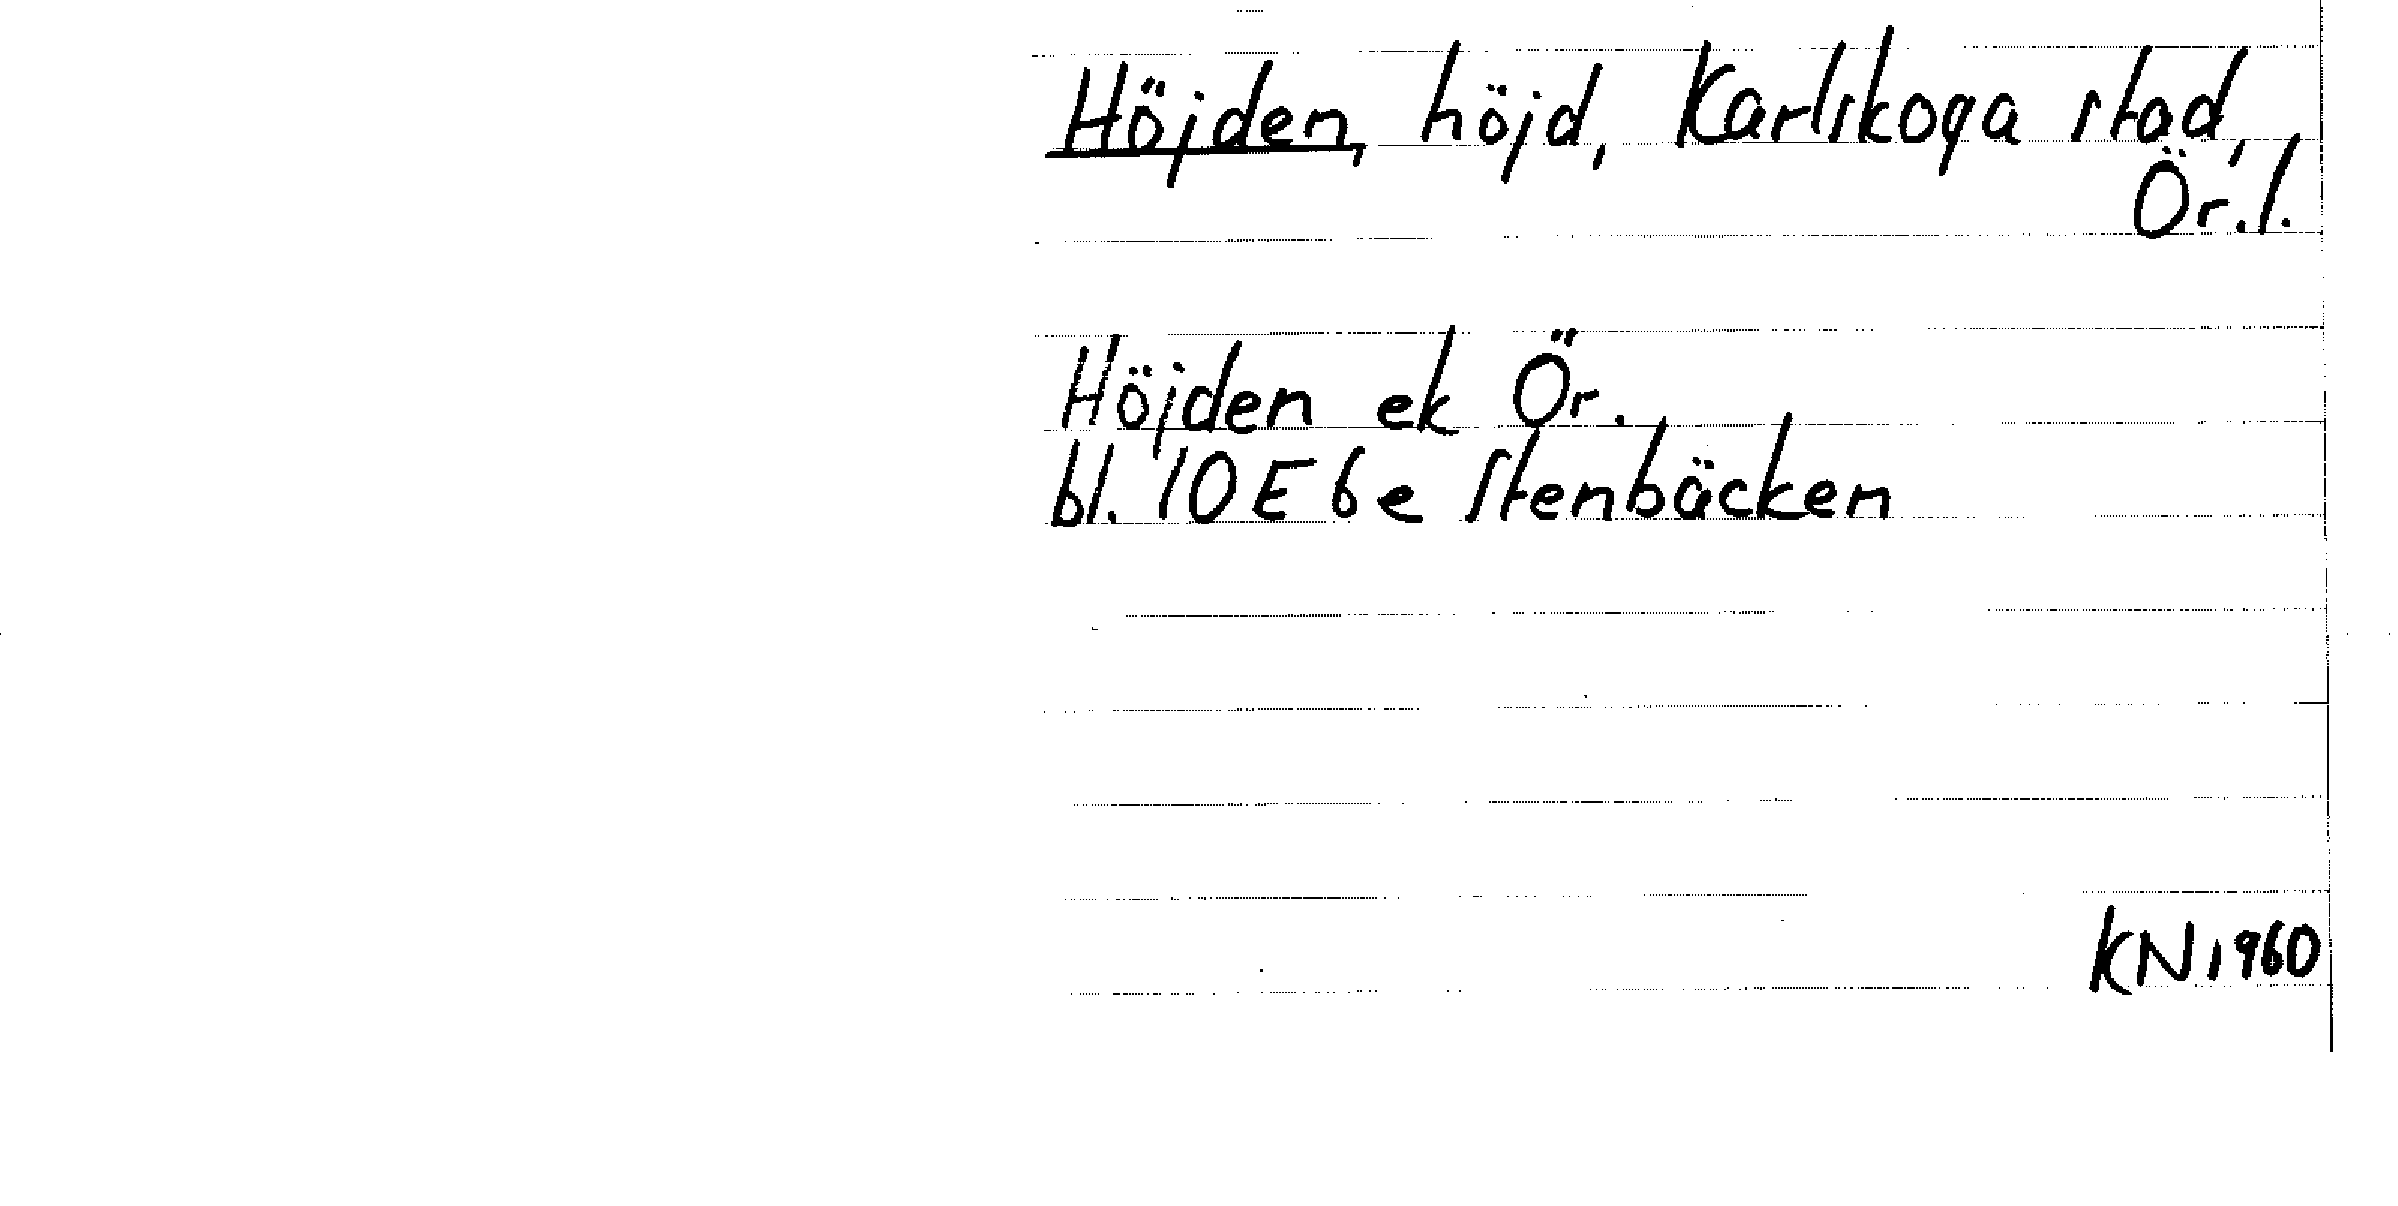 Höjden, höjd, Karlskoga stad,
Ör.l.
Höjden ek Ör.
bl. 10E6e Stenbäcken
KN1960